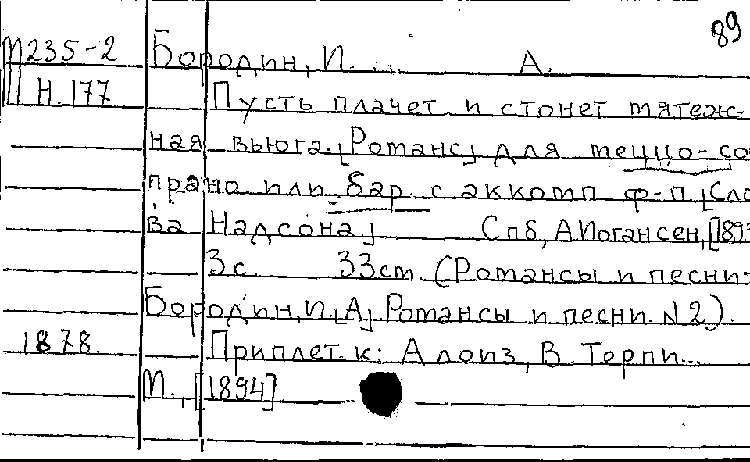 89
М235-2 Бородин, И. А.
Н.177 Пусть плачет и стонет мятеж-
ная вьюга. [Романс] для меццо-со
прано или бар. с аккомп ф-п [Сло
ва Надсона] Спб, А. Иогансен, [189
3 с. 33 см. (Романсы и песни:
Бородин, И. [А] Романсы и песни. N 2).
1878 Приплет. к: Алоиз, В Терпи...
М., [1894]